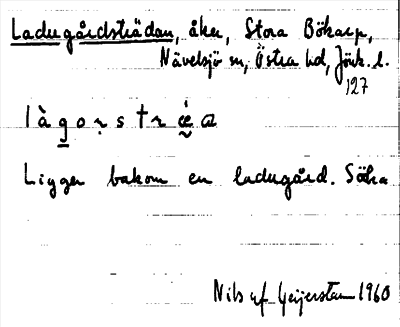 Ladugårdsträdan, åker, Stora Bökarp,
Nävelsjö sn, Östra hd, Jönk. l.
127
l à g o ṛ s t r æ̀ a
Ligger bakom en ladugård. Södra
Nils af Geijerstam 1960